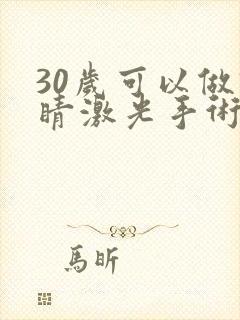 30歲可以做
睛激光手術
馬昕